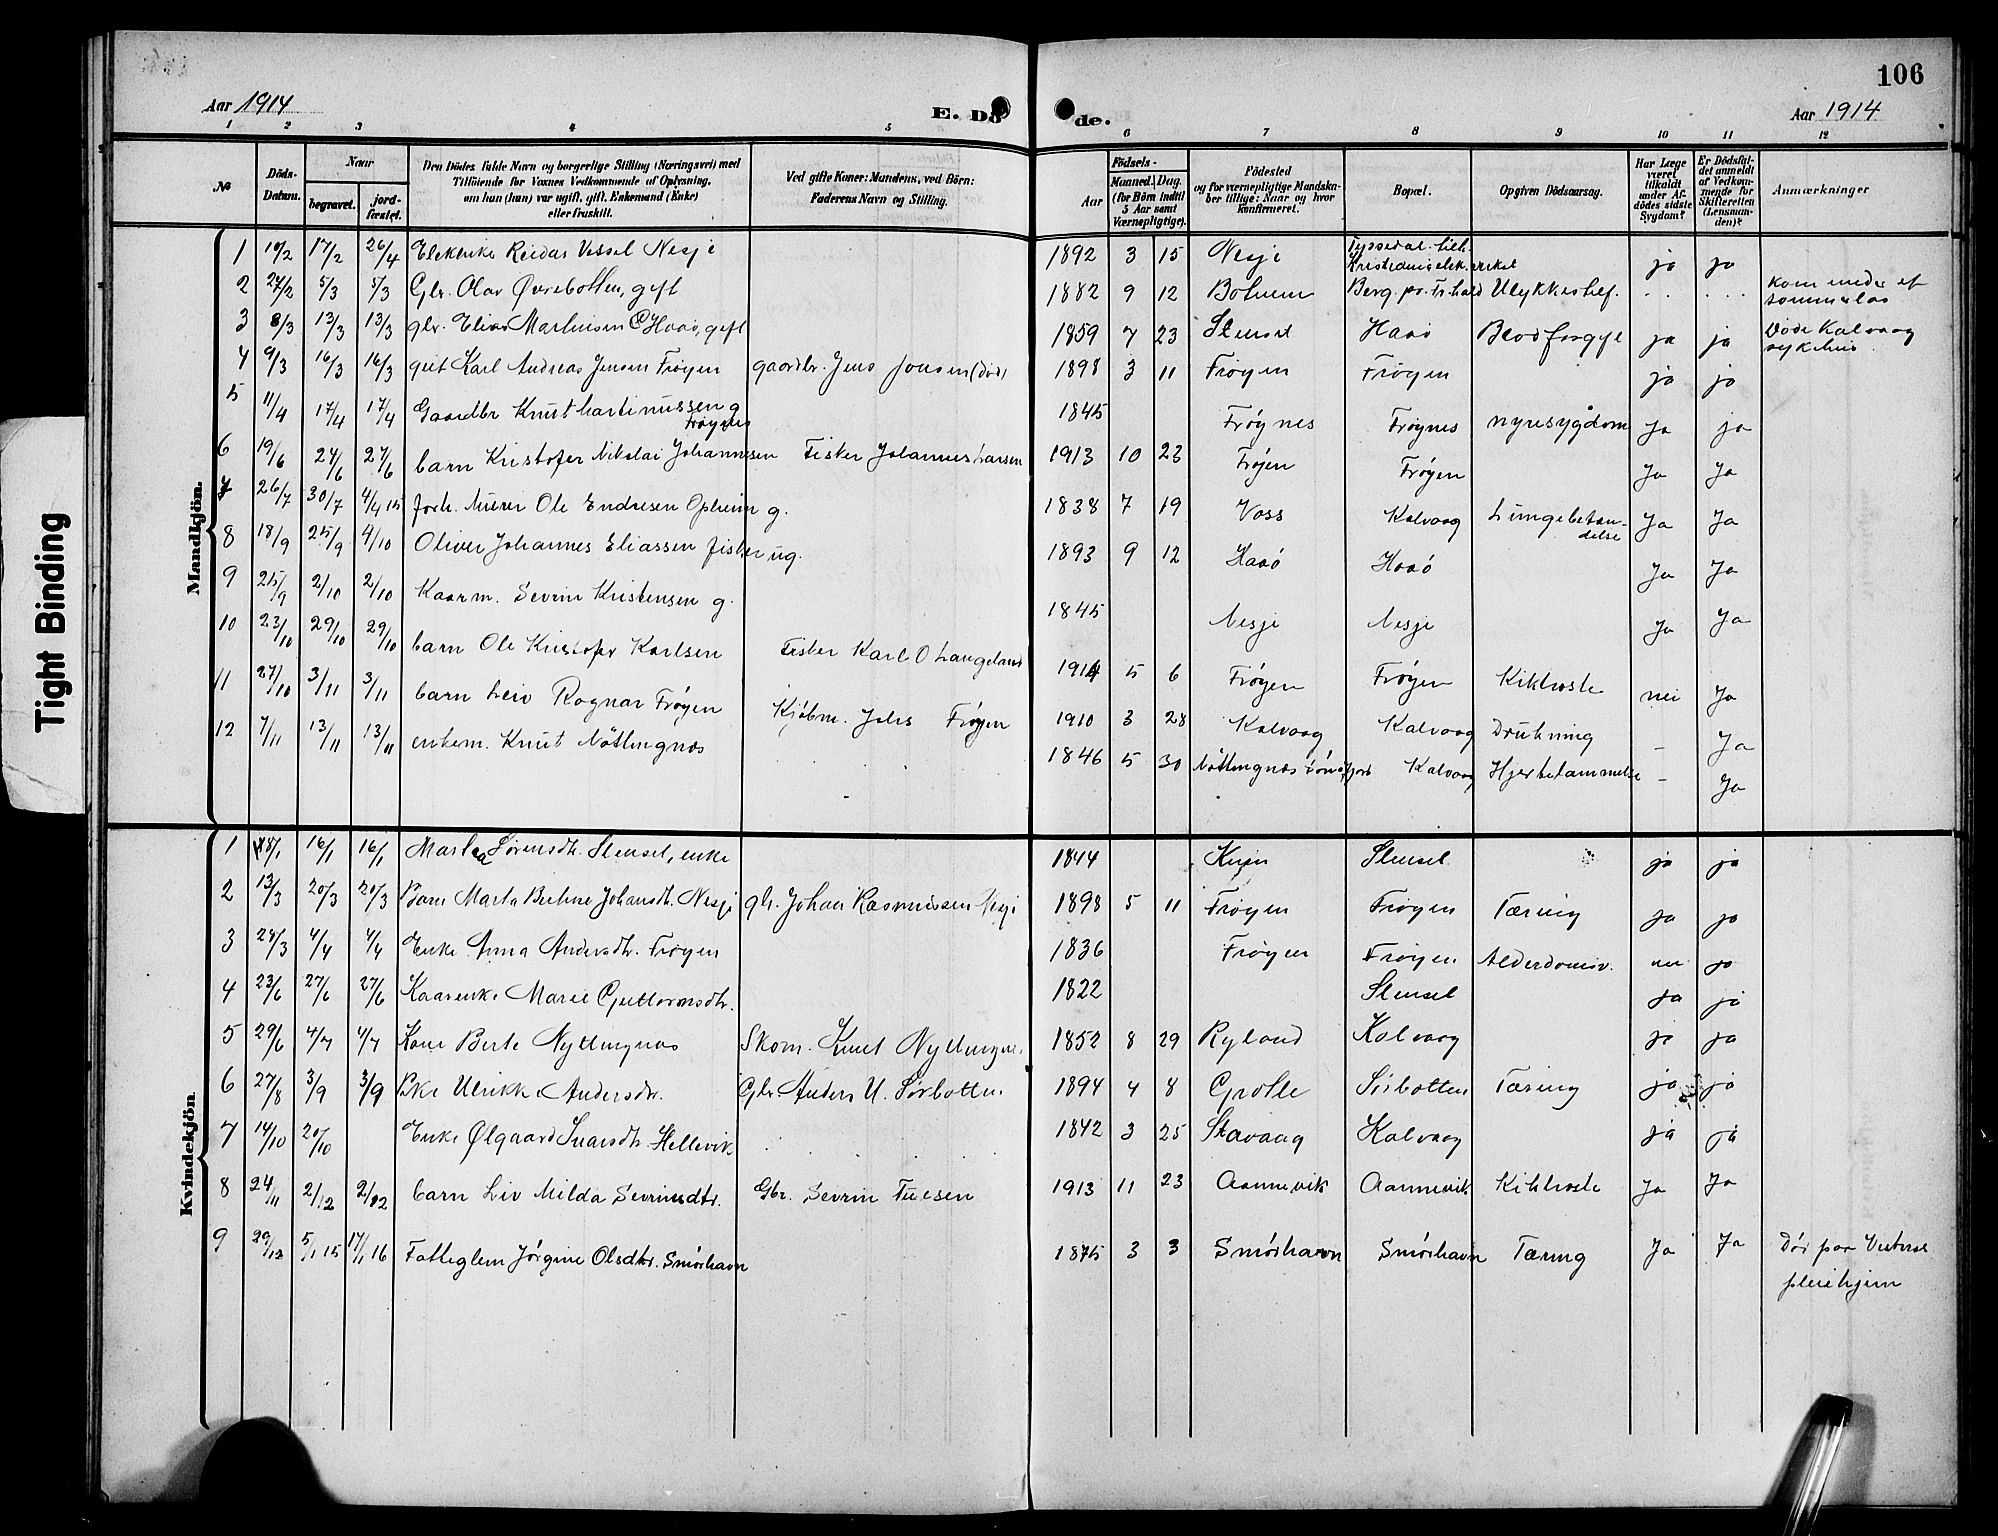 106
Aar 1914
E. Dö de.
Aar 1914
1 2 3 4 5 6 7 8 9 10 11 12
№
Döds-Datum.
Naar
begravet.
jord-fæstet.
Den Dödes fulde Navn og borgerlige Stilling (Næringsvei) med
Tilföiende for Voxnes Vedkommende af Oplysning,
om hun (han) var ugift, gift, Enkemand (Enke)
eller fraskilt.
Ved gifte Koner: Mandens, ved Börn:
Faderens Navn og Stilling.
Födsels-
Aar
Maaned. Dag.
(for Börn indtil
5 Aar samt
Værnepligtige).
Födested
og for værnepligtige Mandska-
ber tillige: Naar og hvor
konfirmeret.
Bopæl.
Opgiven Dödsaarsag.
Har Læge
været
tilkaldt
under Af-
dödes sidste
Sygdom?
Er Dödsfal-
det anmeldt
af Vedkom-
mende for
Skifteretten
(Lensman-
den)?
Anmærkninger
Mandkjön.
1 10/2 17/2 26/4 Reidar Vessel Nesje 1892 3 15 Nesje Tyssedal ja ja
2 27/2 5/3 5/3 Gbr. Olav Øvrebotten, gift 1882 9 12 Botnen Ulykkestilf. kom under et sommerlas
3 8/3 13/3 13/3 gbr. Elias Martinsen Haaø, gift 1859 7 23 Stenset Haaø Blodforgift ja ja Døde Kalvaag sykehus.
4 9/3 16/3 16/3 gut Karl Andreas Jensen Frøyen gaardbr. Jens Jonsen (død) 1898 3 11 Frøyen Frøyen ja ja
5 11/4 17/4 17/4 Gaardbr Knut Martinussen g Frøynes 1845 Frøynes Frøynes nyresygdom Ja ja
6 19/6 27/6 27/6 barn Kristofer Nikolai Johannesen Fisker Johannes Larsen 1913 10 23 Frøyen Frøyen Ja Ja
7 26/7 30/7 4/4 15 forh. Murer Ole Endresen Opheim g. 1838 7 19 Voss Kalvaag Lungebetændelse Ja Ja
8 18/9 25/9 4/10 Oliver Johannes Eliassen fisker ug. 1893 9 12 Haaø Haaø Ja Ja
9 25/9 2/10 2/10 Kaarm. Sevrin Kristensen g. 1845 Nesje Nesje Ja Ja
10 23/10 29/10 29/10 barn Ole Kristofer Karlsen Fisker Karl O Langeland 1914 5 6 Frøyen Frøyen Kikhoste nei Ja
11 27/10 3/11 3/11 barn Leiv Ragnar Frøyen Kjøbm. Johs Frøyen 1910 3 28 Kalvaag Kalvaag Drukning - Ja
12 7/11 13/11 13/11 enkem. Knut Nøttingnæs 1846 5 30 Nøttingnæs Kalvaag Hjertelammelse - Ja
Kvindekjön.
1 8/1 16/1 16/1 Marta Sørensdtr. Stenset, enke 1844 Stenset ja ja
2 13/3 20/3 20/3 Marta Bertine Johansdtr. Nesje gbr. Johan Rasmussen Nesje 1898 5 11 Frøyen Frøyen Tæring ja ja
3 28/3 4/4 4/4 Enke Anna Andersdtr. Frøyen 1836 Frøyen Frøyen Alderdomsv. nei ja
4 23/6 27/6 27/6 Kaarenke Marie Guttormsdtr. 1822 Stenset ja ja
5 29/6 4/7 4/7 Kone Berte Nyttingnæs Skom. Knut Nyttingnæs 1852 8 29 Ryland Kalvaag ja ja
6 27/8 3/9 3/9 Pike Ulrikke Andersdtr. Gbr. Anders U. Sørbotten 1894 4 8 Grotle Sørbotten Tæring ja ja
7 14/10 20/10 Enke Ølgaard Ivarsdtr. Hellevik 1842 3 25 Stavaag Kalvaag ja ja
8 24/11 2/12 2/12 barn Liv Milda Sevrinsdtr. Gbr. Sevrin Tuesen 1913 11 23 Aannevik Aannevik Kikhoste Ja Ja
9 29/12 5/1 15 17/1 16 Fatteglem Jørgine Olsdtr. Smørhavn 1875 3 3 Smørhavn Smørhavn Tæring Ja Ja Dør paa pleiehjem
Tight Binding